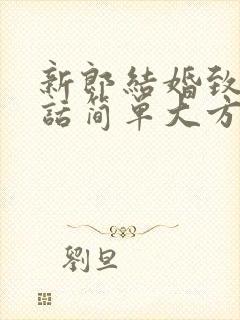 新郎結婚致
話简單大方
劉旦